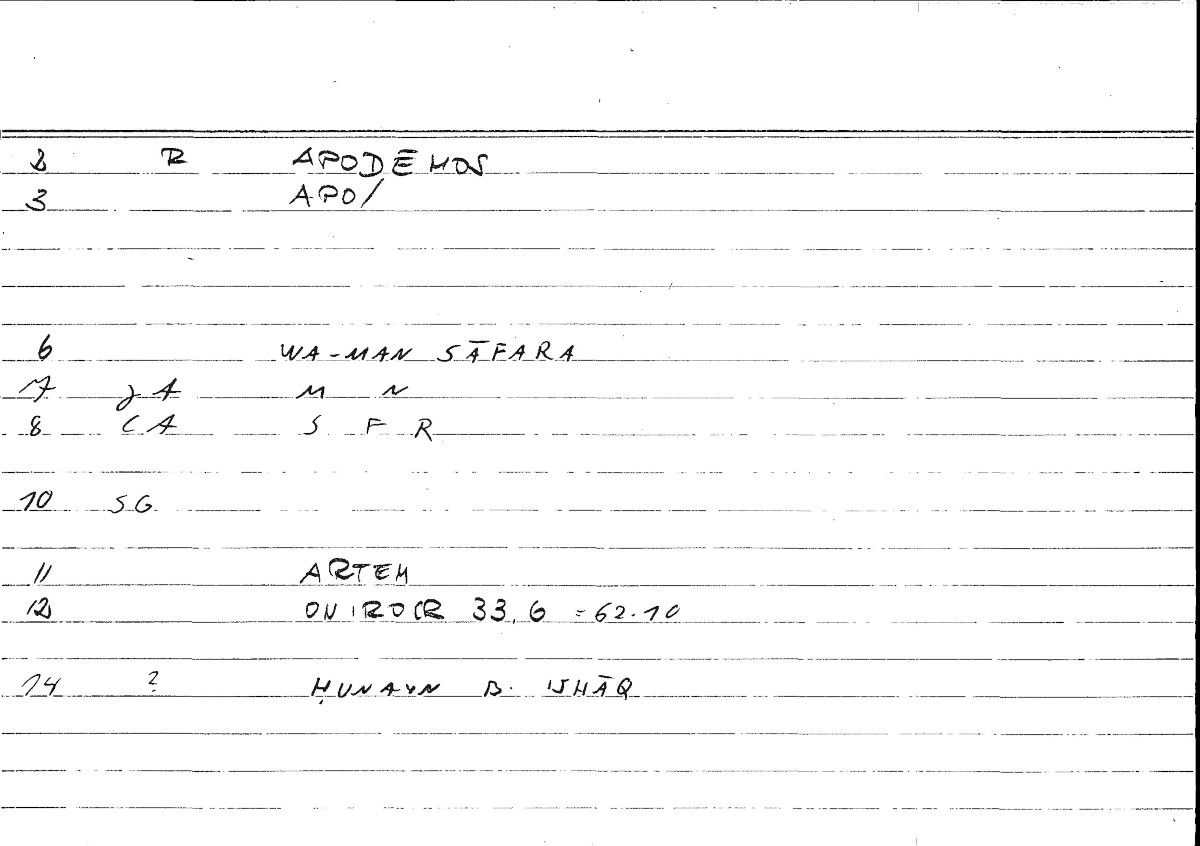 2 R APODĒMOS
3 APO/
6 WA-MAN SĀFARA
7 JA M N
8 CA S F R
10 SG
11 ARTEM
12 ONIROCR 33,6 = 62.10
14 ? ḤUNAYN B. ISḤĀQ